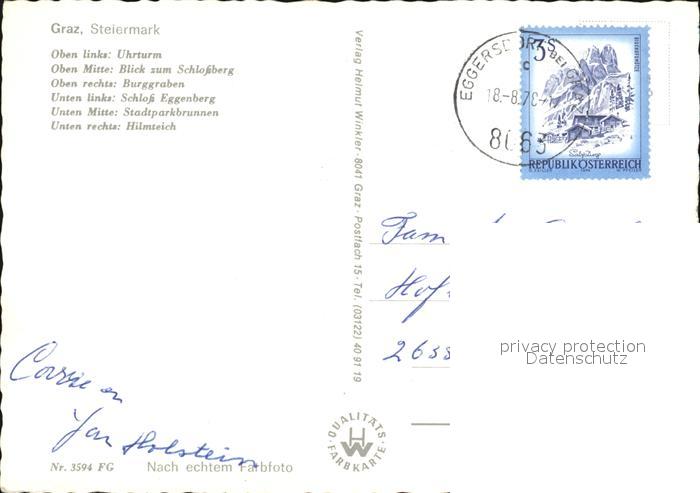 Graz, Steiermark
Oben links: Uhrturm
Oben Mitte: Blick zum Schloßberg
Oben rechts: Burggraben
Unten links: Schloß Eggenberg
Unten Mitte: Stadtparkbrunnen
Unten rechts: Hilmteich
Verlag Helmut Winkler · 8041 Graz · Postfach 15 · Tel. (03122) 40 91 19
EGGERSDORF BEI GRAZ
c
18.-8.78
8063
3
S
REPUBLIK ÖSTERREICH
Fam
Hof
privacy protection
Datenschutz
Corrie en
Jan Holstein
QUALITÄTS
FARBKARTE
Nr. 3594 FG
Nach echtem Farbfoto